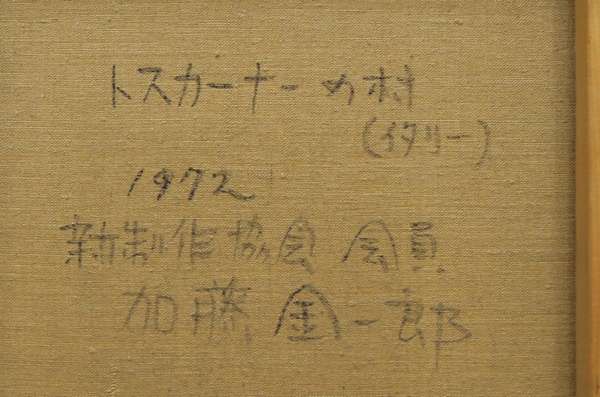 トスカーナーの村
(イタリー)
1972
新制作協会 会員
加藤金一郎